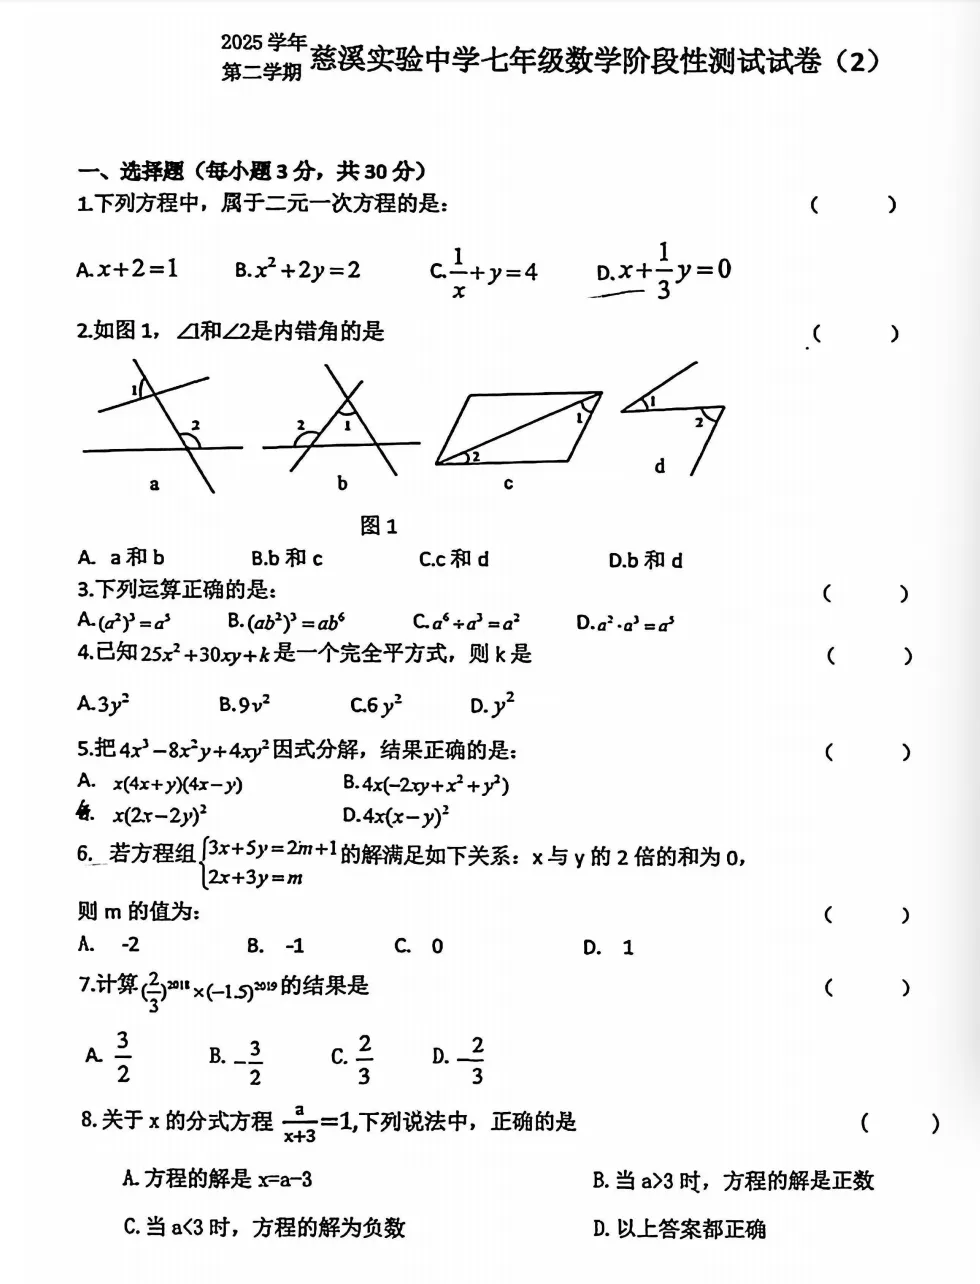 2025 学年
第二学期 慈溪实验中学七年级数学阶段性测试试卷（2）
一、选择题（每小题 3 分，共 30 分）
1.下列方程中，属于二元一次方程的是： （ ）
A.x+2=1 B.x²+2y=2 C.1/x+y=4 D.x+1/3y=0
2.如图 1，∠1和∠2是内错角的是 （ ）
1 2 2 1 1 2 1 2
a b c d
图 1
A. a 和 b B.b 和 c C.c 和 d D.b 和 d
3.下列运算正确的是： （ ）
A.(a²)³=a⁵ B.(ab²)³=ab⁶ C.a⁶÷a³=a² D.a²·a³=a⁵
4.已知25x²+30xy+k是一个完全平方式，则 k 是 （ ）
A.3y² B.9v² C.6y² D.y²
5.把4x³-8x²y+4xy²因式分解，结果正确的是： （ ）
A. x(4x+y)(4x-y) B.4x(-2xy+x²+y²)
x(2x-2y)² D.4x(x-y)²
6. 若方程组{3x+5y=2m+1的解满足如下关系：x 与 y 的 2 倍的和为 0，
2x+3y=m
则 m 的值为： （ ）
A. -2 B. -1 C. 0 D. 1
7.计算(2/3)²⁰¹⁸×(-1.5)²⁰¹⁹的结果是 （ ）
A. 3/2 B. -3/2 C. 2/3 D. -2/3
8.关于 x 的分式方程 a/x+3=1,下列说法中，正确的是 （ ）
A.方程的解是 x=a-3 B.当 a>3 时，方程的解是正数
C.当 a<3 时，方程的解为负数 D.以上答案都正确